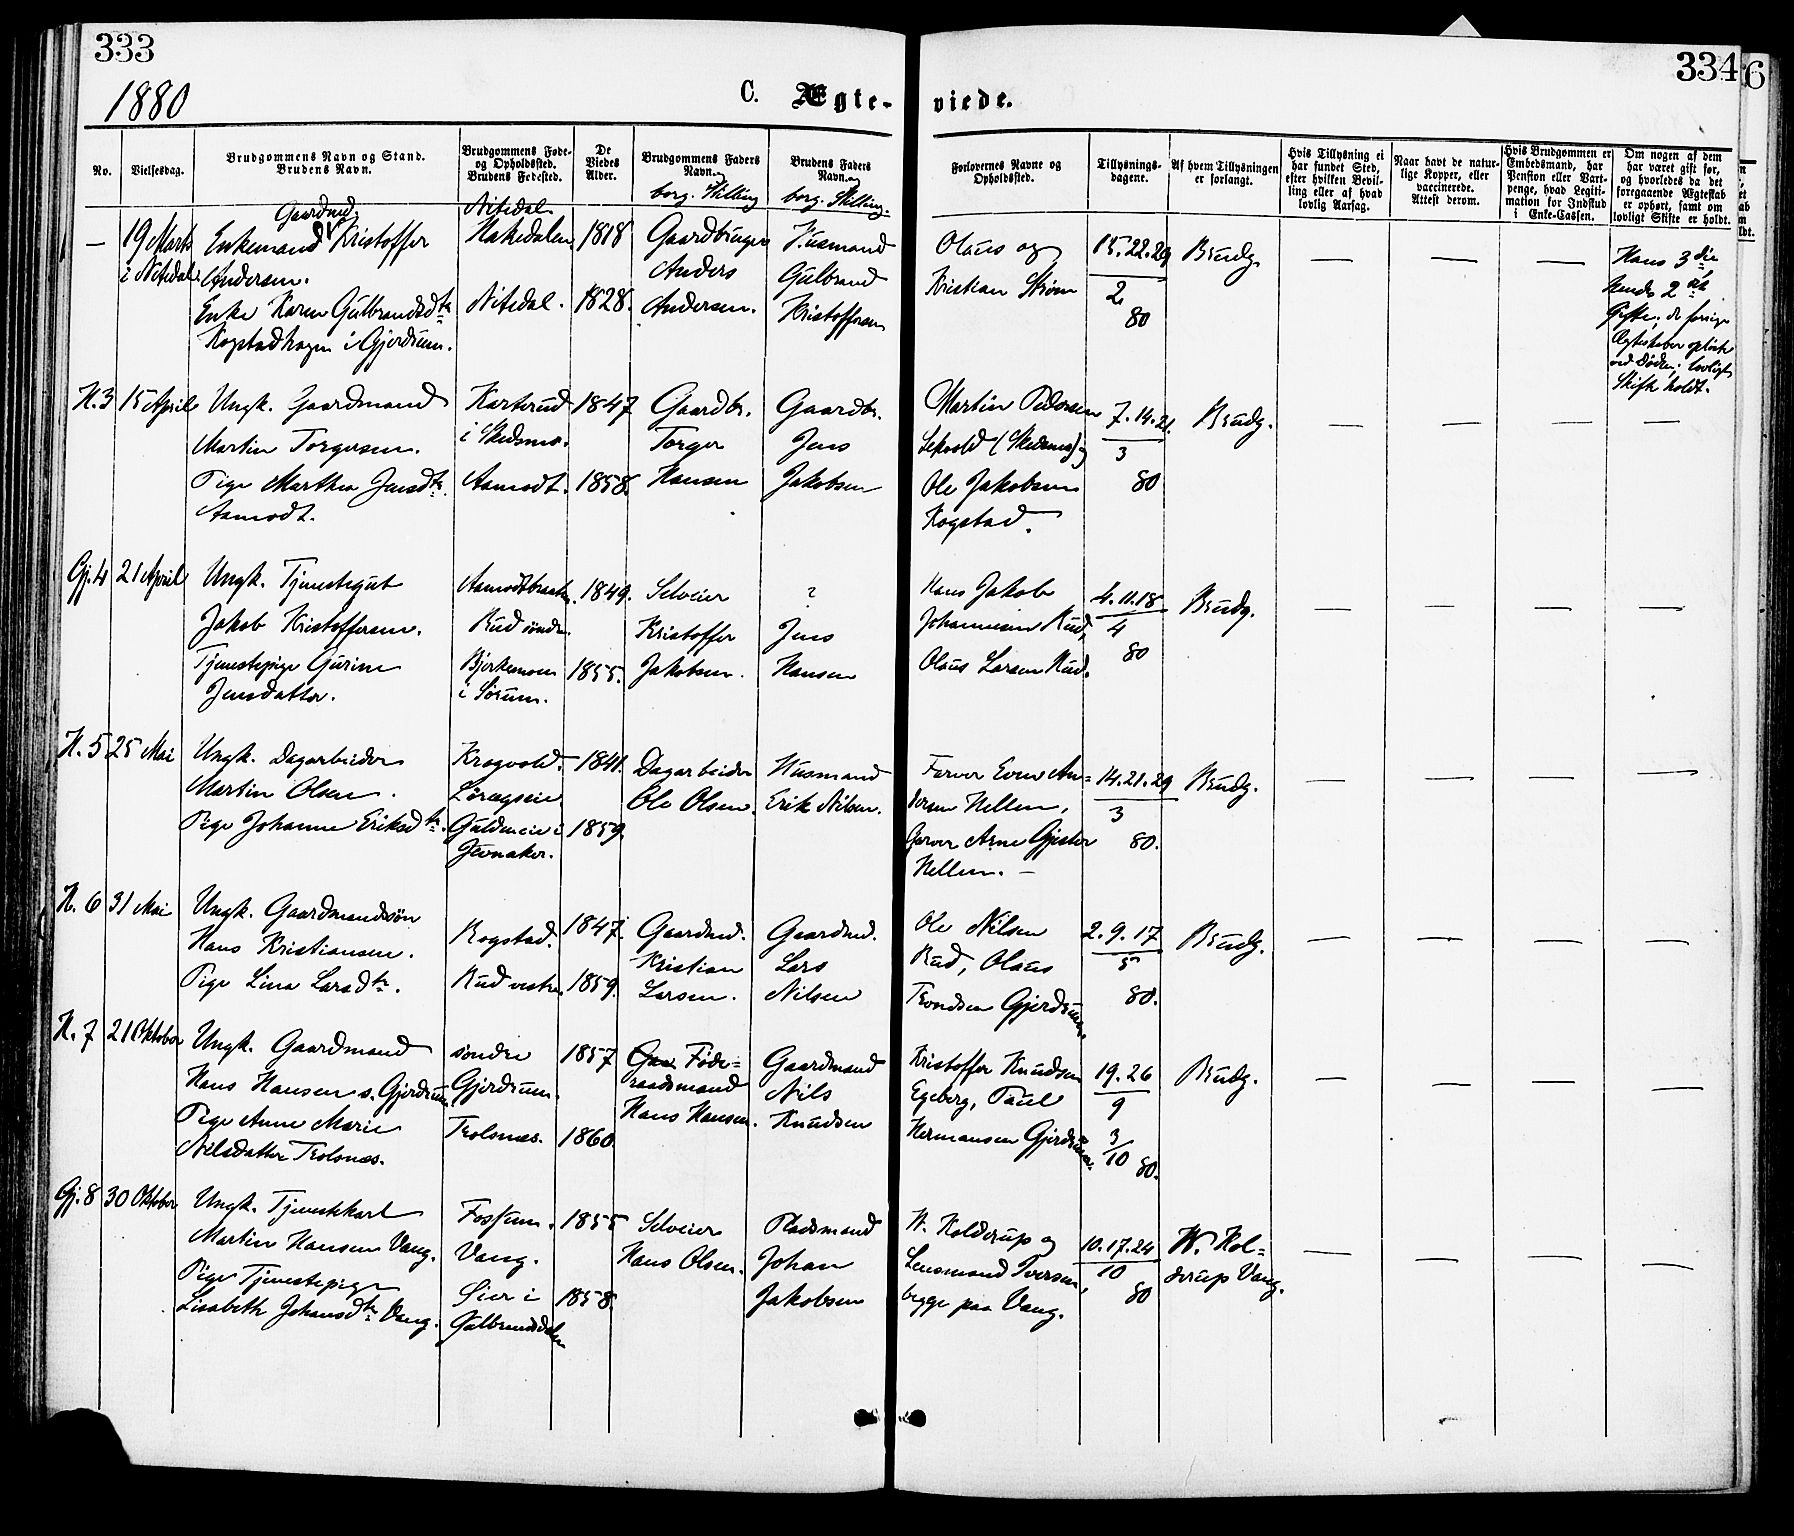 333
334
6
1880
C. Ægte-
viede.
No.
Vielsesdag.
Brudgommens Navn og Stand.
Brudens Navn.
Brudgommens Føde-
og Opholdssted.
Brudens Fødested.
De
Viedes
Alder.
Brudgommens Faders
Navn.
borg. Stilling
Brudens Faders
Navn.
borg. Stilling.
Forlovernes Navne og
Opholdssted.
Tillysnings-
dagene.
Af hvem Tillysningen
er forlangt.
Hvis Tillysning ei
har fundet Sted,
efter hvilken Bevil-
ling eller af hvad
lovlig Aarsag.
Naar havt de natur-
lige Kopper, eller
vaccinerede.
Attest derom.
Hvis Brudgommen er
Embedsmand, har
Pension eller Vart-
penge, hvad Legiti-
mation for Indskud
i Enke-Cassen.
Om nogen af dem
har været gift før,
og hvorledes da det
foregaaende Ægteskab
er ophørt, samt om
lovligt Skifte er holdt.
—
19 Marts
i Nitedal
Gaardmd.
Enkemand Kristoffer
Andersen.
Enke Karen Gulbrandsdtr
Kogstadhagen i Gjerdrum.
Nitedal
Hakedalen
Nitedal.
1818
1828.
Gaardbruger
Anders
Andersen.
Husmand
Gulbrand
Kristoffersen
Olaus og
Kristian Strøm
15.22.29
2
80
Brudg.
— — —
Hans 3die
hendes 2det
Gifte; de forrige
Ægteskaber opløste
ved Døden; lovligt
Skifte holdt.
H. 3
15 April
Ungk. Gaardmand
Martin Torgersen.
Pige Marthea Jensdtr.
Aamodt.
Karterud
i Skedsmo.
Aamodt.
1847
1858.
Gaardbr.
Torger
Hansen
Gaardbr.
Jens
Jakobsen
Martin Pedersen
(Skedsmo) og
Ole Jakobsen
Kogstad.
7.14.21.
3
80
Brudg.
— — — —
Gj. 4
21 April
Ungk. Tjenestegut
Jakob Kristoffersen.
Tjenestepige Gurine
Jensdatter.
Aamodtbraaten.
Rud søndre.
Bjerkemoen
i Sørum.
1849.
1855.
Selveier
Kristoffer
Jakobsen.
?
Jens
Hansen
Hans Jakob
Johannesen Rud,
Olaus Larsen Rud.
4.11.18
4
80
Brudg.
— — — —
H. 5
25 Mai
Ungk. Dagarbeider
Martin Olsen.
Pige Johanne Eriksdtr.
Krogvold.
Guldmeie i
Jevnaker.
1841.
1859.
Dagarbeider
Ole Olsen.
Husmand
Erik Nilsen.
Farver Even An-
dersen Hellen,
Garver Arne Gjester
Hellen. —
14.21.29
3
80.
Brudg.
— — — —
H. 6
31 Mai
Ungk. Gaardmandssøn
Hans Kristiansen.
Pige Lina Larsdtr.
Kogstad.
Rud vestre
1847.
1859.
Gaardmd.
Kristian
Larsen.
Gaardmd.
Lars
Nilsen
Ole Nilsen
Rud, Olaus
Trondsen Gjerdrum.
2.9.17
5
80.
Brudg.
— — — —
H. 7
21 Oktober
Ungk. Gaardmand
Hans Hansen s. Gjerdrum
Pige Anne Marie
Nilsdatter Trolsnæs.
søndre
Gjerdrum.
Trolsnæs.
1857
1860
Gaa Føde-
raadsmand
Hans Hansen.
Gaardmand
Nils
Knudsen
Kristoffer Knudsen
Egeberg, Paul
Hermansen Gjerdrum.
19.26
9
3
10
80.
Brudg.
— — — —
Gj. 8
30 Oktober
Ungk. Tjenestekarl
Martin Hansen Vang.
Pige Tjenestepige
Lisabeth Johansdtr Vang.
Fossum.
Vang.
Øier i
Gulbrandsdalen
1855
1858.
Selveier
Hans Olsen.
Pladsmand
Johan
Jakobsen
W. Kolderup og
Lensmand Iversen,
begge paa Vang.
10.17.24
10
80
W. Kol-
derup Vang.
— — — —